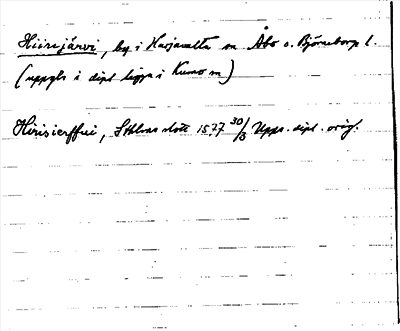 Hiisijärvi, by i Harjavalta sn Åbo o. Björneborgs l.
(uppgls i dipl ligga i Kumo sn)
Hirisierffui, Sthlms slott 1577 30/3 Upps. dipl. orig.